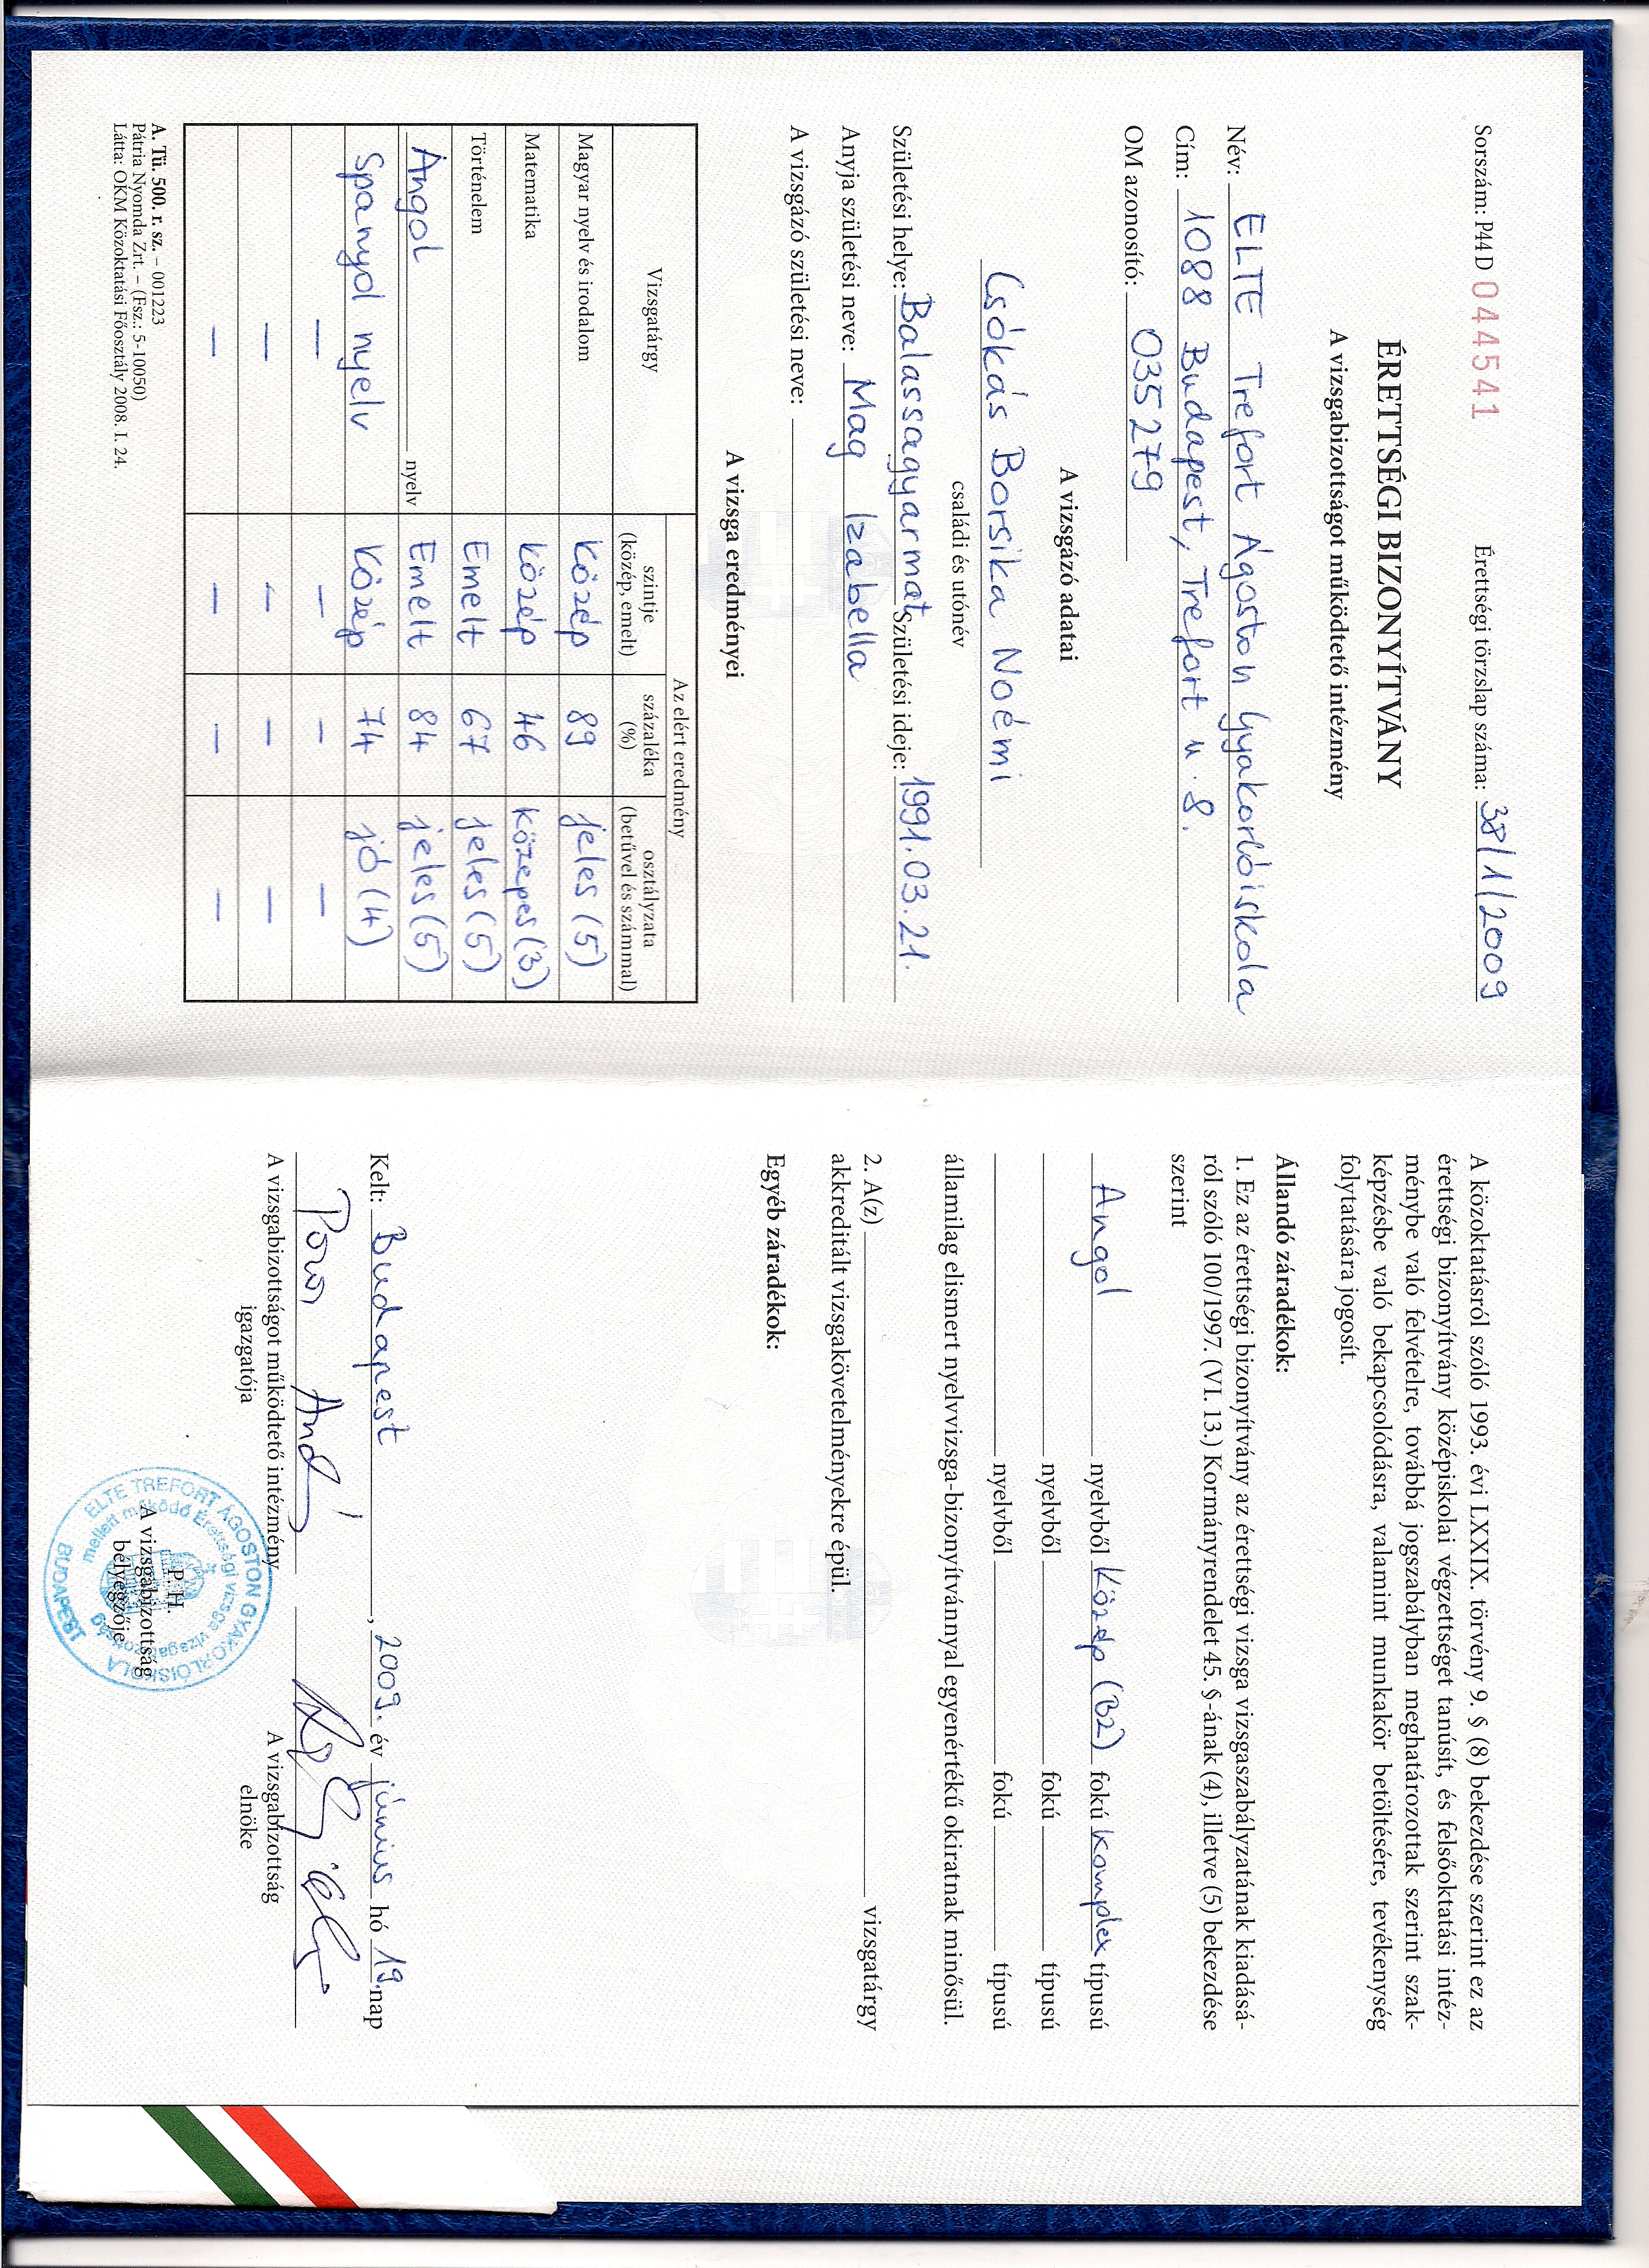 Sorszám: P44 D 044541 Érettségi törzslap száma: 38/1/2009
ÉRETTSÉGI BIZONYÍTVÁNY
A vizsgabizottságot működtető intézmény
Név: ELTE Trefort Ágoston Gyakorlóiskola
Cím: 1088 Budapest, Trefort u. 8.
OM azonosító: 035279
A vizsgázó adatai
Csókás Borsika Noémi
családi és utónév
Születési helye: Balassagyarmat Születési ideje: 1991.03.21.
Anyja születési neve: Mag Izabella
A vizsgázó születési neve:
A vizsga eredményei
Vizsgatárgy Az elért eredmény
szintje (közép, emelt) százaléka (%) osztályzata (betűvel és számmal)
Magyar nyelv és irodalom Közép 89 jeles (5)
Matematika Közép 46 közepes (3)
Történelem Emelt 67 jeles (5)
Angol nyelv Emelt 84 jeles (5)
Spanyol nyelv Közép 74 jó (4)
— — — —
— — — —
— — — —
A. Tü. 500. r. sz. – 001223
Pátria Nyomda Zrt. – (Fsz.: 5-10050)
Látta: OKM Közoktatási Főosztály 2008. I. 24.
A közoktatásról szóló 1993. évi LXXIX. törvény 9. § (8) bekezdése szerint ez az
érettségi bizonyítvány középiskolai végzettséget tanúsít, és felsőoktatási intéz-
ménybe való felvételre, továbbá jogszabályban meghatározottak szerint szak-
képzésbe való bekapcsolódásra, valamint munkakör betöltésére, tevékenység
folytatására jogosít.
Állandó záradékok:
1. Ez az érettségi bizonyítvány az érettségi vizsga vizsgaszabályzatának kiadásá-
ról szóló 100/1997. (VI. 13.) Kormányrendelet 45. §-ának (4), illetve (5) bekezdése
szerint
Angol nyelvből Közép (B2) fokú komplex típusú
nyelvből fokú típusú
nyelvből fokú típusú
államilag elismert nyelvvizsga-bizonyítvánnyal egyenértékű okiratnak minősül.
2. A(z) vizsgatárgy
akkreditált vizsgakövetelményekre épül.
Egyéb záradékok:
Kelt: Budapest, 2009. év június hó 19. nap
A vizsgabizottságot működtető intézmény
igazgatója
A vizsgabizottság
elnöke
P. H.
A vizsgabizottság
bélyegzője
ELTE TREFORT ÁGOSTON GYAKORLÓISKOLA
mellett működő Érettségi vizsga vizsgabizottság
BUDAPEST